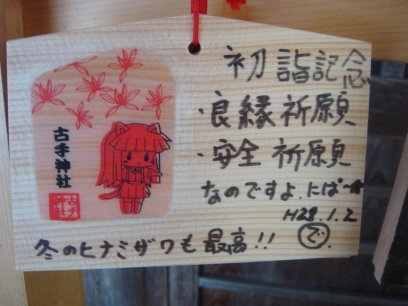 初詣記念
・良縁祈願
・安全祈願
なのですよ、にぱ〜☆
H28.1.2
で
冬のヒナミザワも最高!!
古手神社